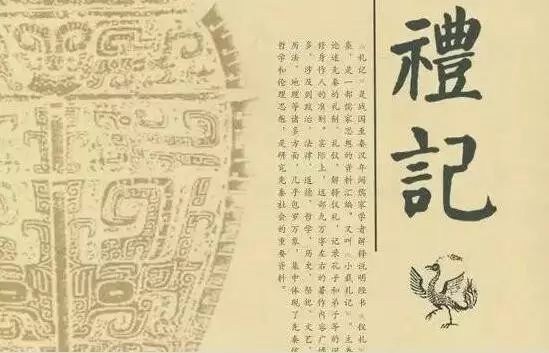 禮記
《礼记》是战国至秦汉年间儒家学者解释说明经书《仪礼》
集，是一部儒家思想的资料汇编。又叫《小戴礼记》。主要
论述先秦的礼制、礼仪，解释仪礼，记录孔子和弟子等的
修身作人的准则。实际上，这部九万字左右的著作内容广博
多，涉及到政治、法律、道德、哲学、历史、祭祀、文艺、
历法、地理等诸多方面，几乎包罗万象，集中体现了先秦
哲学和伦理思想，是研究先秦社会的重要资料。